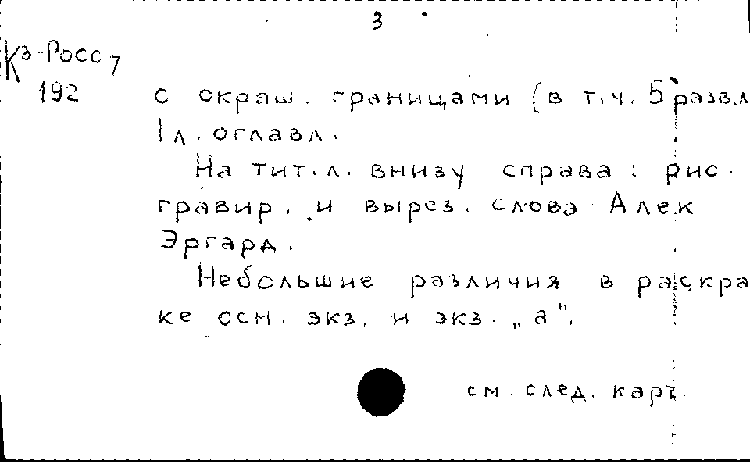 3
Кз-Росс 7
192
с окраш. границами (в т.ч. 5 развл
1 л. оглавл.
На тит. л. внизу справа: рис.
гравир. и вырез. слова Алек
Эргард.
Небольшие различия в раскра
ке осн. экз. и экз. „а".
см. след. карт